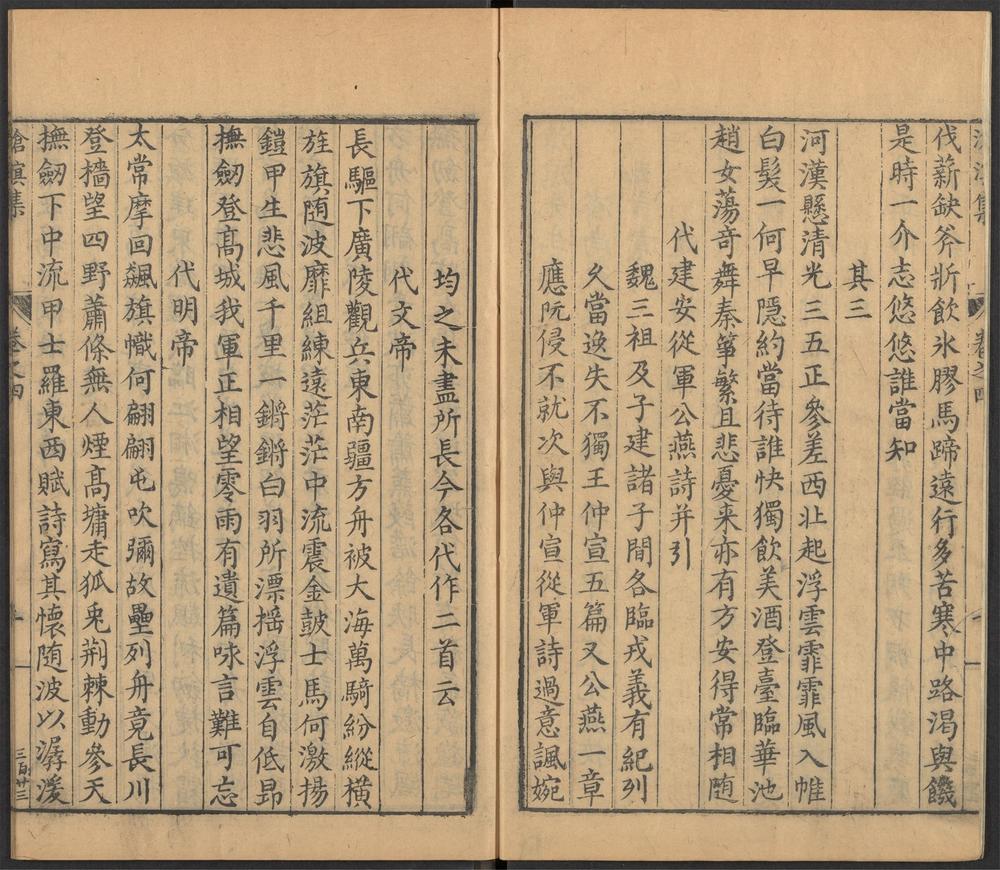 伐薪缺斧斨飲氷膠馬蹄遠行多苦寒中路渴與饑
是時一介志悠悠誰當知
其三
河漢懸清光三五正參差西北起浮雲霏霏風入帷
白髮一何早隱約當待誰快獨飲美酒登臺臨華池
趙女蕩奇舞秦箏繁且悲憂来亦有方安得常相随
代建安從軍公燕詩并引
魏三祖及子建諸子間各臨戎義有紀列
久當逸失不獨王仲宣五篇又公燕一章
應阮侵不就次與仲宣從軍詩過意諷婉
均之未盡所長今各代作二首云
代文帝
長驅下廣陵觀兵東南疆方舟被大海萬騎紛縱橫
旌旗随波靡組練遠茫茫中流震金鼓士馬何激揚
鎧甲生悲風千里一鏘鏘白羽所漂揺浮雲自低昂
撫劒登高城我軍正相望零雨有遺篇味言難可忘
代明帝
太常摩回飆旗幟何翩翩屯吹彌故壘列舟竟長川
登檣望四野蕭條無人煙高墉走狐兎荆棘動參天
撫劒下中流甲士羅東西賦詩寫其懷随波以潺湲
滄溟集
卷之四
三百廿三